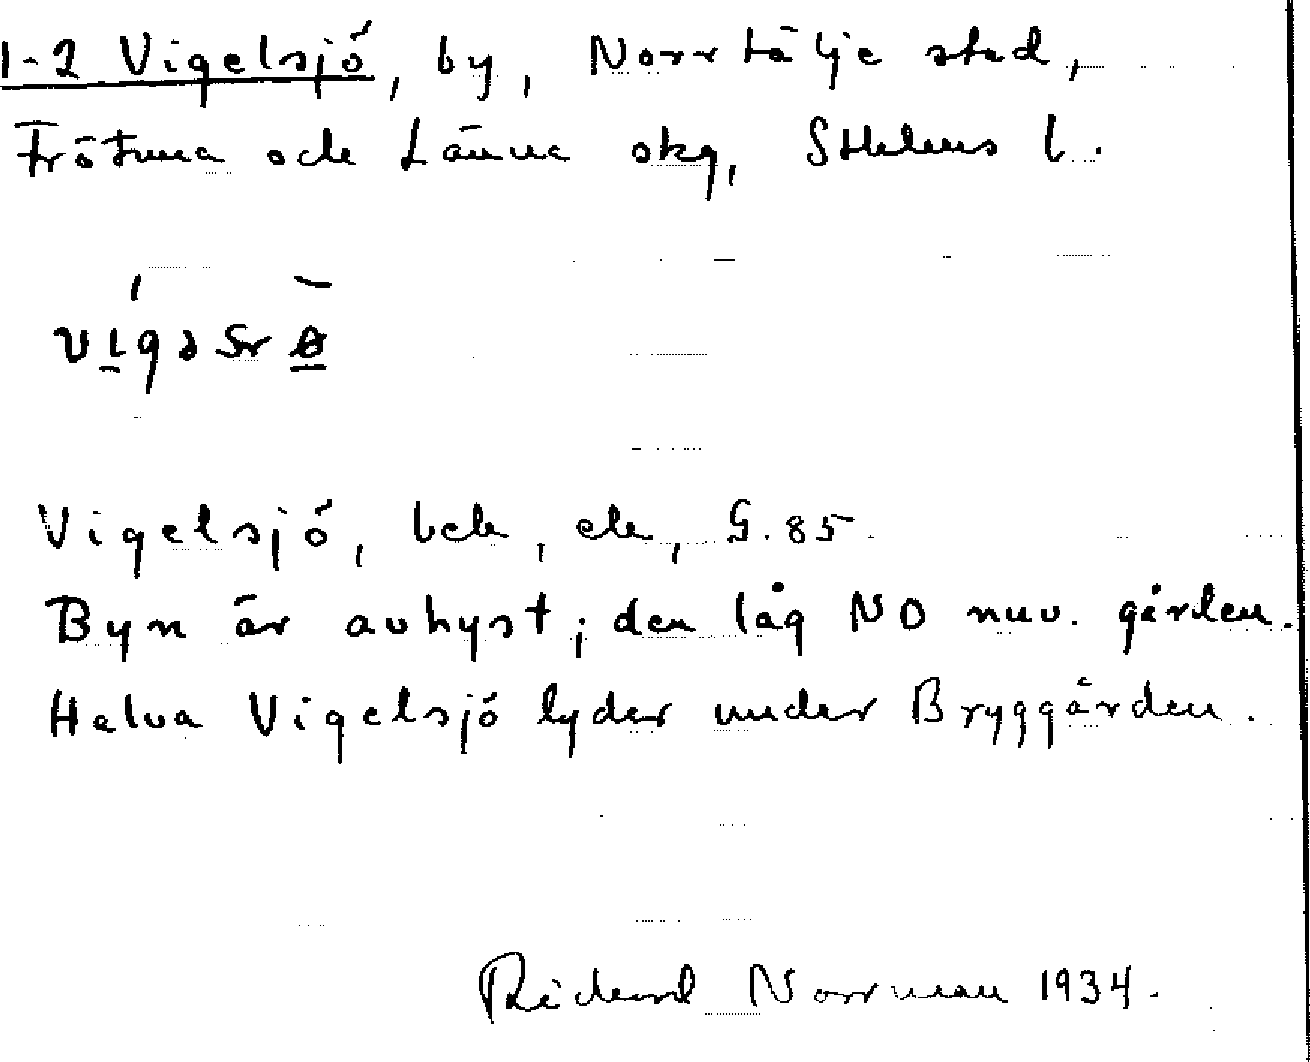 1-2 Vigelsjö, by, Norrtälje stad,
Frötuna och Länna skg, Sthlms l.
Vigelsjö, bck, ek, G. 85
Byn är avhyst; den låg NO nuv. gården.
Halva Vigelsjö lyder under Bryggården.
Rickard Norrman 1934.